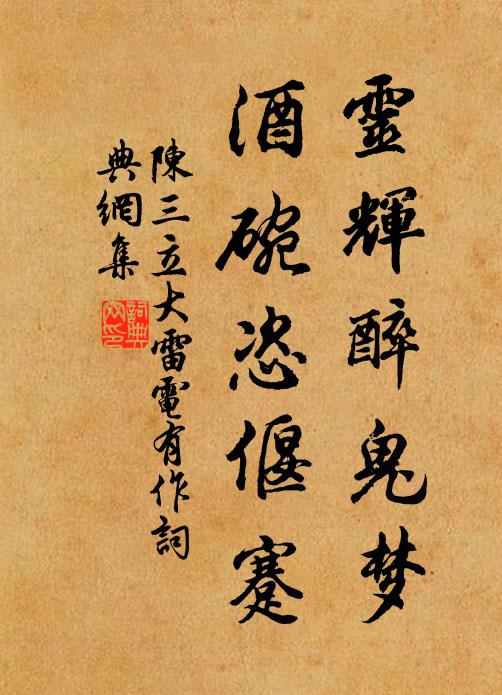 靈輝醉鬼梦
酒碗恣偃蹇
陳三立大雷電有作詞
典網集
詞典
网印